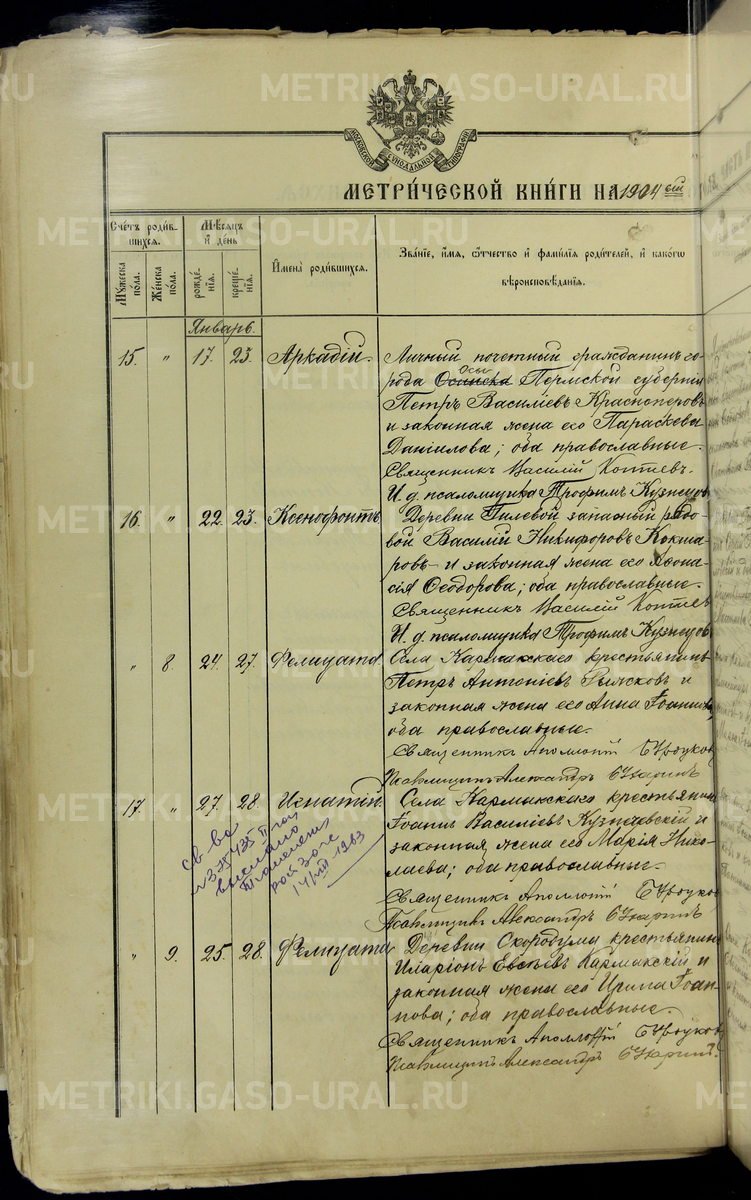 METRIKI.GASO-URAL.RU
МОСКОВСКОЙ СѴНОДАЛЬНОЙ ТИПОГРАФІИ
МЕТРИ́ЧЕСКОЙ КНИ́ГИ НА 1904 ый
Сче́тъ роди́вшихся.
Му́жеска по́ла.
Же́нска по́ла.
Мѣ́сяцъ и҆ де́нь
рожде́нїѧ.
креще́нїѧ.
И҆мена̀ роди́вшихсѧ.
Зва́нїе, и҆́мѧ, ѻ҆́тчество и҆ фами́лїѧ роди́телей, и҆ како́гѡ вѣроисповѣ́данїѧ.
Январь.
15. " 17. 23. Аркадій.
Личный почетный гражданинъ го-
рода Осинска Осы Пермской губерніи
Петръ Василіевъ Красноперовъ
и законная жена его Параскева
Даніилова; оба православные.
Священникъ Василій Коптевъ.
И. д. псаломщика Трофимъ Кузнецовъ
16. " 22. 23. Ксенофонтъ.
Деревни Гилевой запасный рядо-
вой Василій Никифоровъ Кокша-
ровъ и законная жена его Афана-
сія Ѳеодорова; оба православные.
Священникъ Василій Коптевъ
И. д. псаломщика Трофимъ Кузнецовъ
" 8. 24. 27. Фелицата.
Села Кармакскаго крестьянинъ
Петръ Антоніевъ и
законная жена его Анна Іоаннова,
оба православные.
Священникъ Аполлоній
Псаломщикъ Александръ
17. " 27. 28. Игнатій.
Села Кармакскаго крестьянинъ
Іоаннъ Василіевъ Кузнаевскій и
законная жена его Марія Нико-
лаева; оба православные.
Св-во
выслано
14/VIII-1963
Священникъ Аполлоній
Псаломщикъ Александръ
" 9. 25. 28. Фелицата
Деревни Скородума крестьянинъ
Иларіонъ Евсѣевъ Кармакскій и
законная жена его Ирина Іоан-
нова; оба православные.
Священникъ Аполлоній
Псаломщикъ Александръ